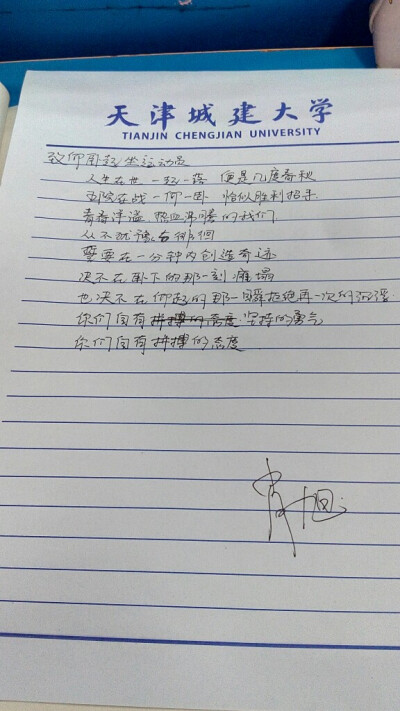 天津城建大学
TIANJIN CHENGJIAN UNIVERSITY
致仰卧起坐运动员
人生在世 一起一落 便是几度春秋
一仰一卧 恰似胜利招手
青春洋溢 热血沸腾的我们
从不犹豫与徘徊
誓要在一分钟内创造奇迹
决不在卧下的那一刻瘫塌
也决不在仰起的那一瞬拒绝再一次的
你们自有拼搏的态度 坚持的勇气
你们自有拼搏的态度